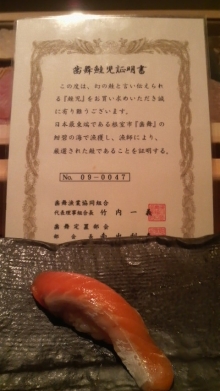 歯舞鮭児証明書
この度は、幻の鮭と言い伝えられ
る『鮭児』をお買い求めいただき誠
に有り難うございます。
日本最東端である根室市『歯舞』の
紺碧の海で漁獲し、漁師により、
厳選された鮭であることを証明する。
No. 09-0047
歯舞漁業協同組合
代表理事組合長 竹内一義
歯舞定置部会
部会長